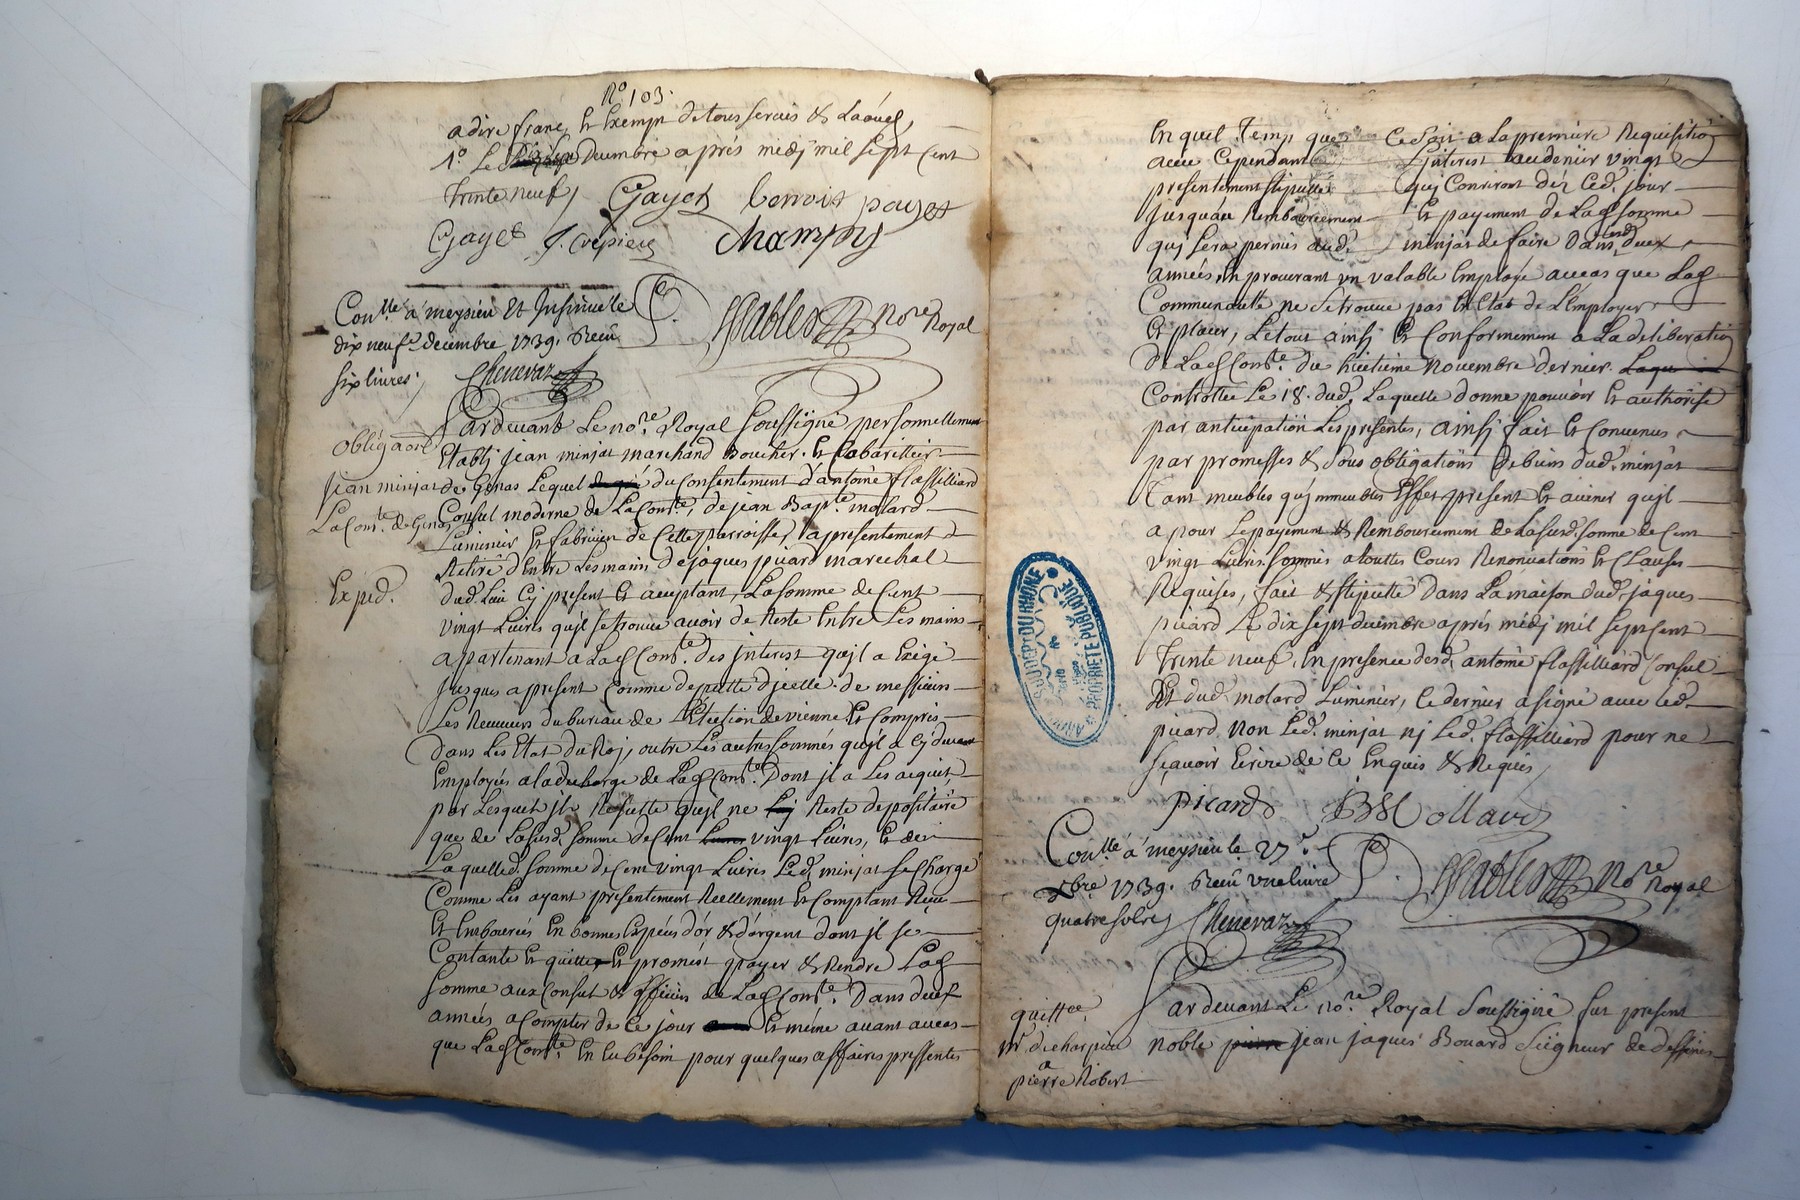 No 103.
a dire franc et Exempt de tous servis & Laoués,
1º Le decembre après midj mil sept cent
trente neuf, Gayet benoit payet
Gayet J. Crepieu Champy
Conllé a meysieu Et Insinué le
dix neufe decembre 1739. Receu
six livres. Chenevaz
Sablon Nore Royal
Pardevant Le nore. Royal soussigné personnellement
Establj jean minjat marchand Boucher. Et Cabarettier
de Genas Lequel du Consentement d'antoine flassilliard
Consul moderne de La Conte, de jean Bapte. molard
Luminier Et fabricien de Cette parroisse, a presentement
Retiré d'Entre Les mains de jaques picard marechal
dud. Lieu Cy present Et acceptant, La somme de Cent
vingt Livres qujl se trouve avoir de Reste Entre Les mains
apartenant a Lad. Conte. des jnterest qujl a Exigé
jusques a present Comme deputté d'jcelle de messieurs
Les Receveurs du bureau de L'Election de vienne Et Compris
dans Les Etat du Roj, outre Les autres sommes qujl a Cy devant
Employées a la decharge de Lad. Conte. Dont jl a Les acquits
par Lesquels jl Resulte qujl ne Reste depositaire
que de La susd. somme de Cent vingt Livres, Et de
Laquelle d. somme de Cent vingt Livres Led. minjat se Charge
Comme Les ayant presentement Reellement Et Comptant Reçu
Et Emboursés En bonnes Espèces d'ór & d'árgent dont jl se
Contante Et quitte Et promest payer & Rendre Lad.
somme aux Consul & officiers de Lad. Conte. Dans deux
années a Compter de Ce jour Et même avant au cas
que Lad. Conte. En Eu besoin pour quelques affaires pressentes
Obliga~on
jean minjat
La Conte. de Genas
Exped.
En quel Temp que Ce soit a La première Requisition
avec Cependant L'jnterest au denier vingt
presentement stipullé quj Couriront dez Ced. jour
jusqu'au Remboursement Et payement de Lad. somme
quj sera permis aud. minjat de faire Dans Lesd. deux
années, En procurant un valable Employe au cas que Lad.
Communauté ne se trouve pas En Etat de L'Employer
Et placer, Le tout ainsj Et Conformement a La deliberation
de Lad. Conte. du huitième Novembre dernier.
Controllée Le 18. dud. Laquelle donne pouvoir Et authorise
par anticipation Les presentes, ainsj fait Et Convenus
par promesses & sous obligations de biens dud. minjat
Tant meubles qu'jmmeubles Effet present Et avenir qujl
a pour Le payement & Remboursement de La susd. somme de Cent
vingt Livres soumis a touttes Cours Renonciations Et Clauses
Requises, fait & stipullé Dans La maison dud. jaques
picard Le dix sept decembre après midj mil sept cent
trente neuf, En presence desd. antoine flassilliard Consul
Et dud. molard Luminier, Ce dernier a signé avec Led.
picard Non Led. minjat nj Led. flassilliard pour ne
sçavoir Ecrire de Ce Enquis & Requis,
picard JB Mollard
Conllé a meysieu le 27.
Xbre 1739. Receu une livre
quatre sols Chenevaz
Sablon Nore Royal
Pardevant Le nore Royal soussigné fut present
noble jean jaques Bouard Seigneur de dessines
quittce.
pierre Robert
PROPRIETE PUBLIQUE